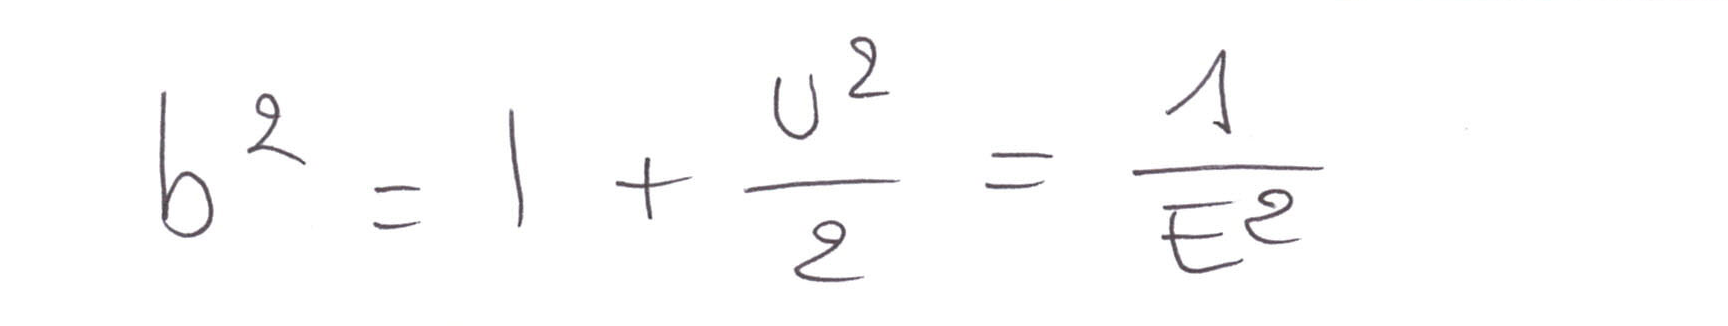 b² = 1 + U²/2 = 1/E²